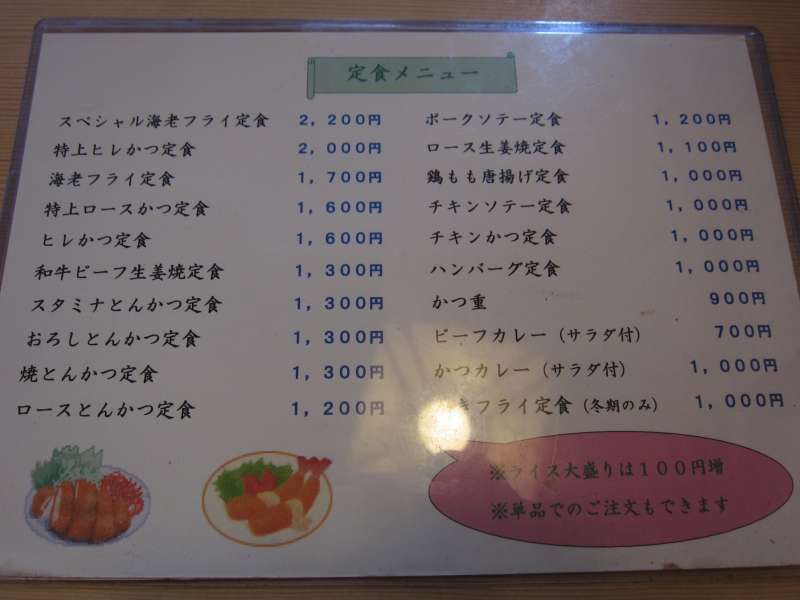 定食メニュー
スペシャル海老フライ定食 2，200円
特上ヒレかつ定食 2，000円
海老フライ定食 1，700円
特上ロースかつ定食 1，600円
ヒレかつ定食 1，600円
和牛ビーフ生姜焼定食 1，300円
スタミナとんかつ定食 1，300円
おろしとんかつ定食 1，300円
焼とんかつ定食 1，300円
ロースとんかつ定食 1，200円
ポークソテー定食 1，200円
ロース生姜焼定食 1，100円
鶏もも唐揚げ定食 1，000円
チキンソテー定食 1，000円
チキンかつ定食 1，000円
ハンバーグ定食 1，000円
かつ重 900円
ビーフカレー（サラダ付） 700円
かつカレー（サラダ付） 1，000円
きフライ定食（冬期のみ） 1，000円
※ライス大盛りは１００円増
※単品でのご注文もできます